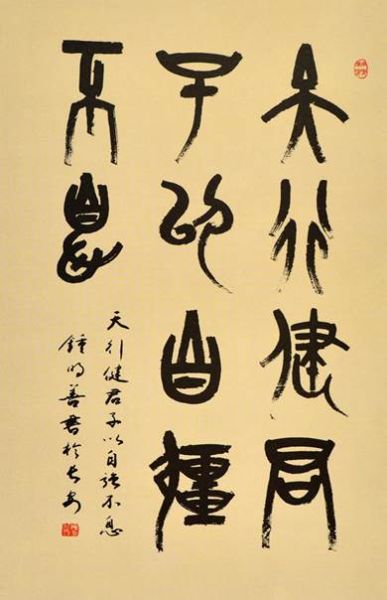 天行健君
子以自彊
不息
天行健君子以自强不息
鍾明善書於长安